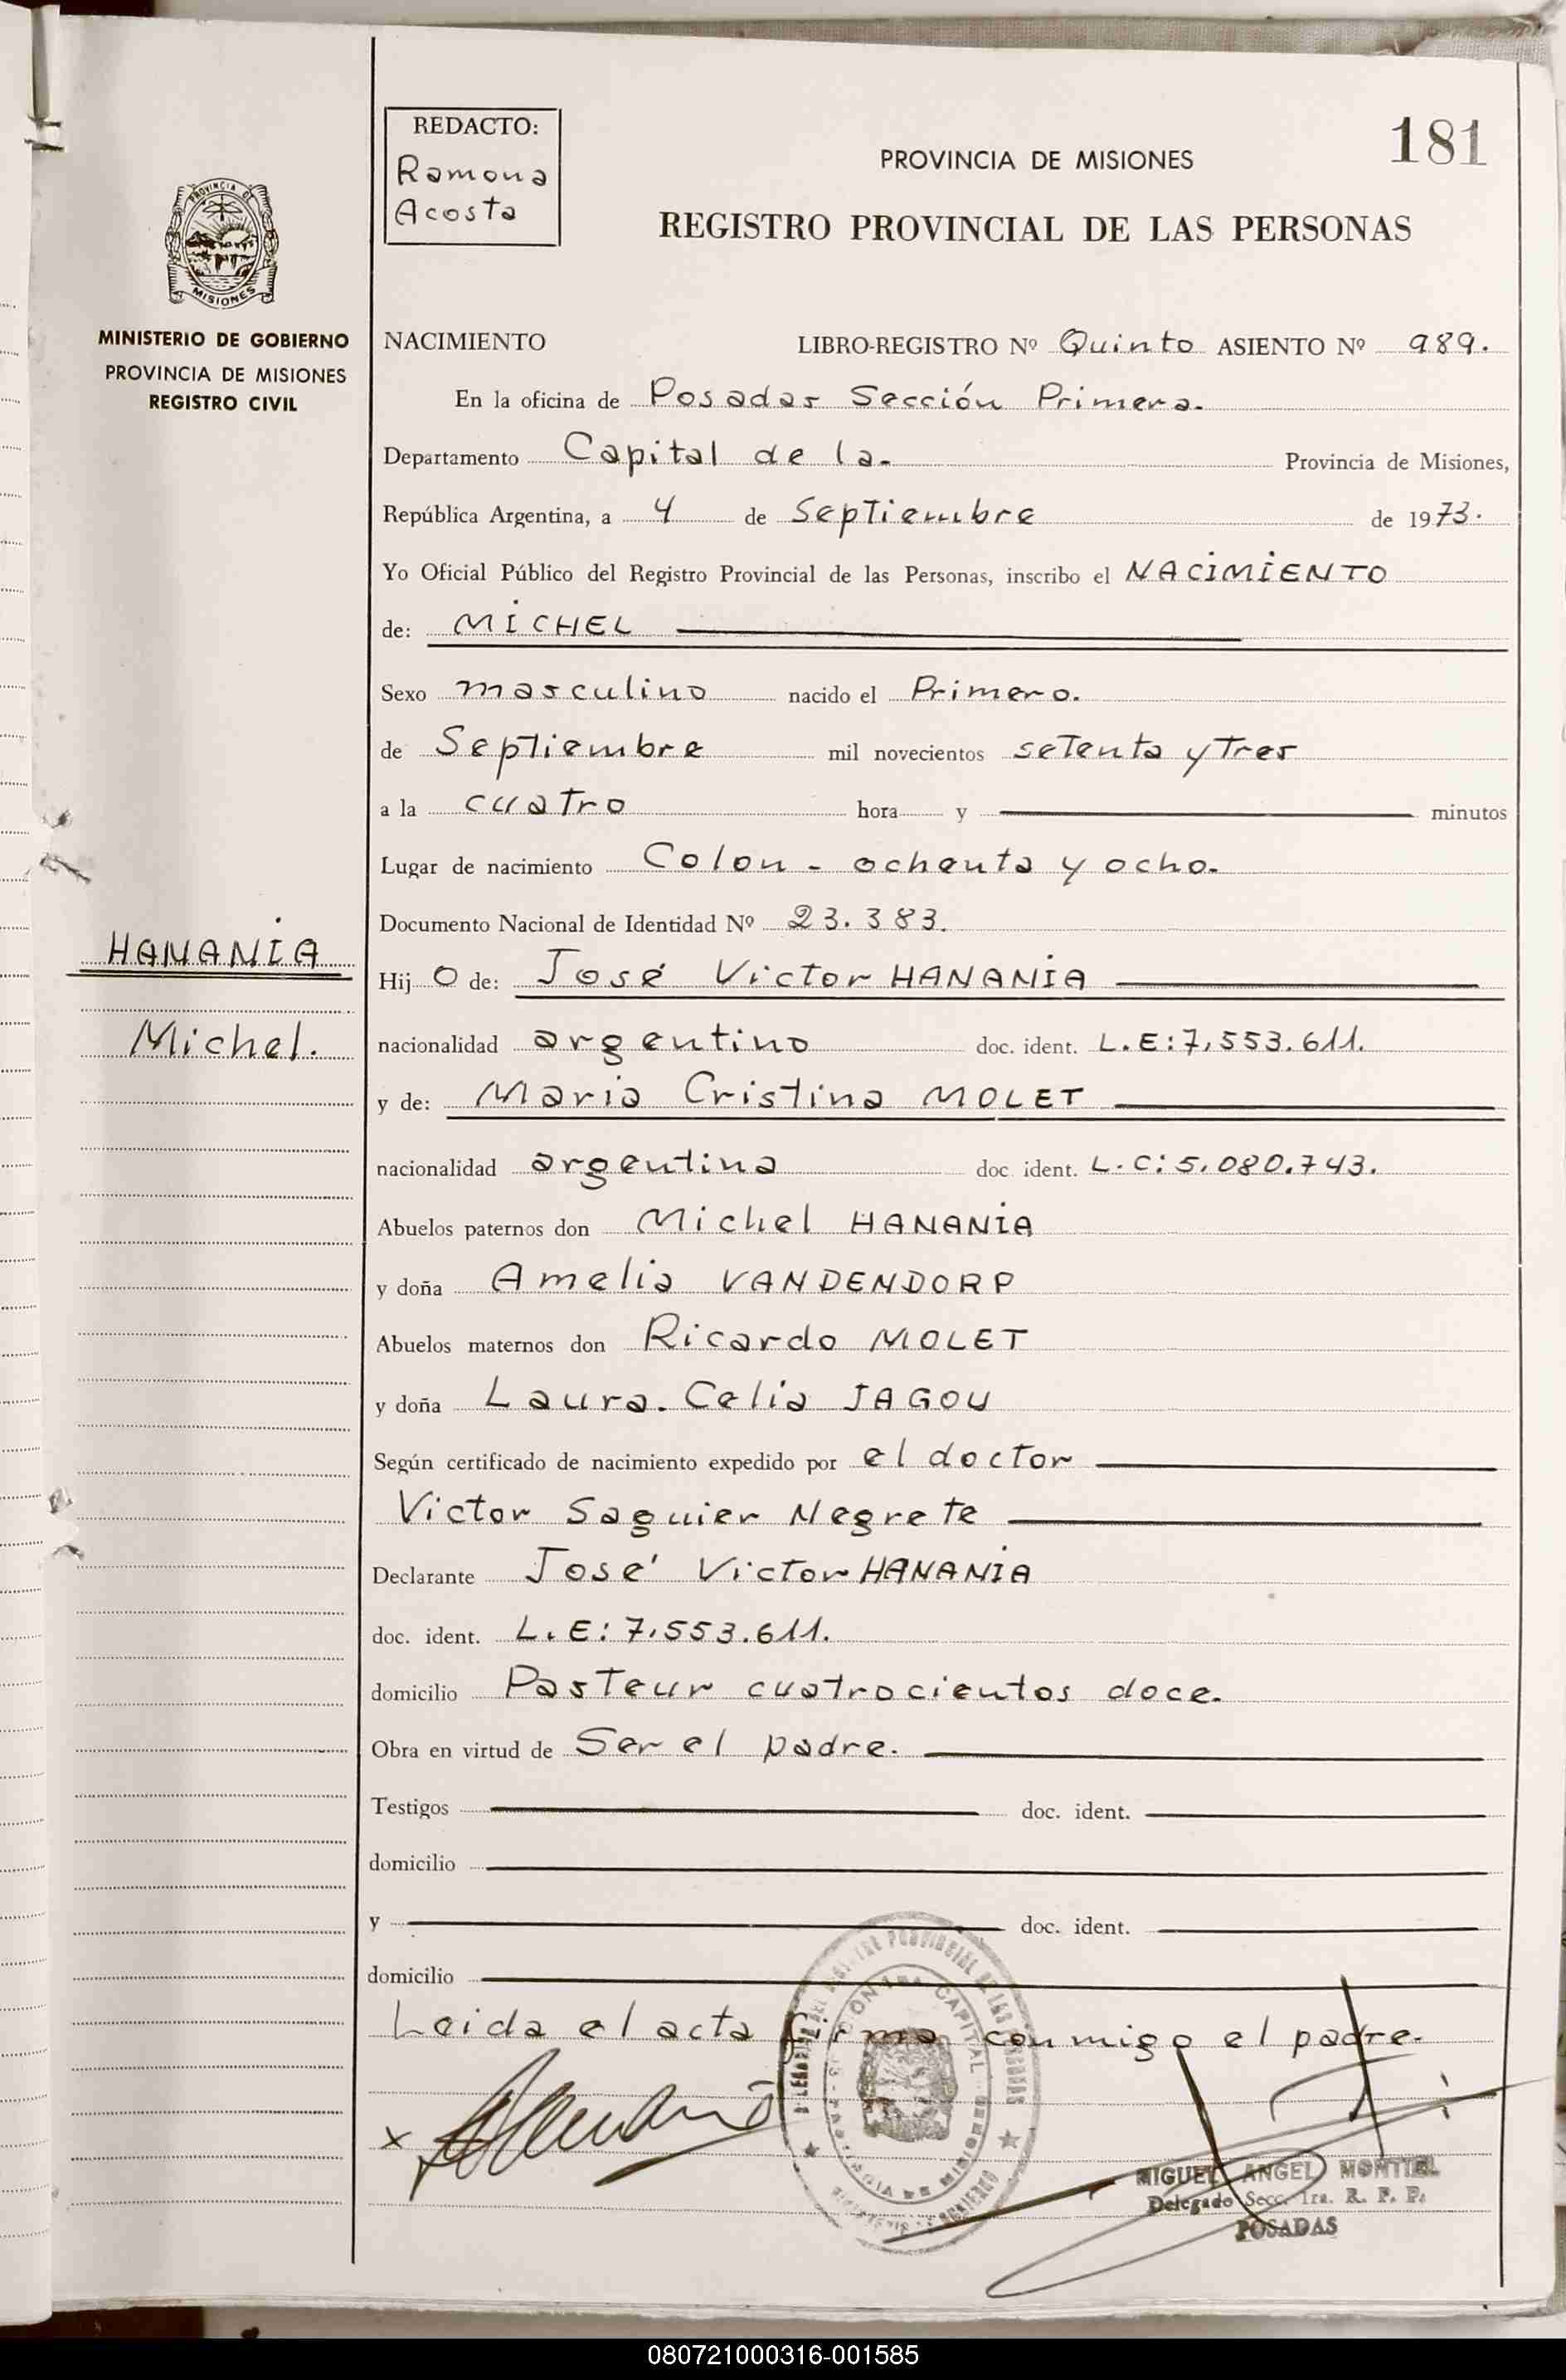 REDACTO:
Ramona
Acosta
181
PROVINCIA DE MISIONES
REGISTRO PROVINCIAL DE LAS PERSONAS
PROVINCIA DE
MISIONES
MINISTERIO DE GOBIERNO
PROVINCIA DE MISIONES
REGISTRO CIVIL
NACIMIENTO LIBRO-REGISTRO Nº Quinto ASIENTO Nº 989.
En la oficina de Posadas Sección Primera.
Departamento Capital de la. Provincia de Misiones,
República Argentina, a 4 de Septiembre de 1973.
Yo Oficial Público del Registro Provincial de las Personas, inscribo el NACIMIENTO
de: MICHEL
Sexo masculino nacido el Primero.
de Septiembre mil novecientos setenta y Tres
a la cuatro hora y minutos
Lugar de nacimiento Colon - ochenta y ocho.
Documento Nacional de Identidad Nº 23.383.
HANANIA
Hij O de: José Victor HANANIA
Michel.
nacionalidad argentino doc. ident. L.E:7,553.611.
y de: Maria Cristina MOLET
nacionalidad argentina doc. ident. L.C:5.080.743.
Abuelos paternos don Michel HANANIA
y doña Amelia VANDENDORP
Abuelos maternos don Ricardo MOLET
y doña Laura. Celia JAGOU
Según certificado de nacimiento expedido por el doctor
Victor Saguier Negrete
Declarante José Victor HANANIA
doc. ident. L.E:7,553.611.
domicilio Pasteur cuatrocientos doce.
Obra en virtud de Ser el padre.
Testigos doc. ident.
domicilio
y doc. ident.
domicilio
Leida el acta firma conmigo el padre.
x
MIGUEL ANGEL MONTIEL
Delegado Secc. 1ra. R. P. P.
POSADAS
080721000316-001585